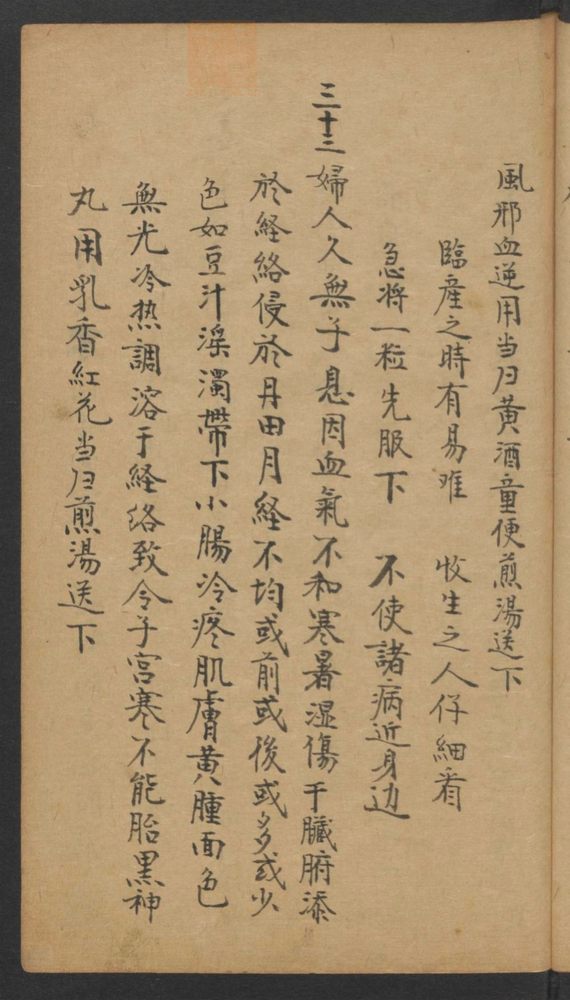 風邪血逆用当归黄酒童便煎湯送下
臨産之時有易难 收生之人仔細看
急将一粒先服下 不使諸病近身边
三十三 婦人久無子息因血氣不和寒暑湿傷于臟腑添
於経絡侵於丹田月経不均或前或後或多或少
色如豆汁滛濁帶下小腸冷疼肌膚黄腫面色
無光冷热調溶于経络致令子宮寒不能胎黒神
丸用乳香紅花当归煎湯送下